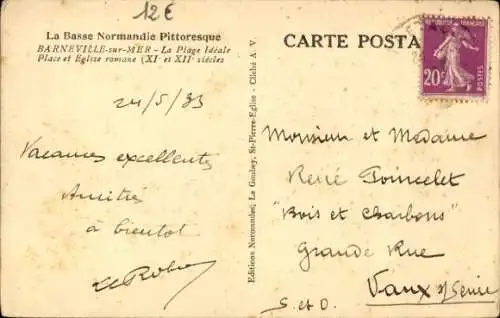 12€
La Basse Normandie Pittoresque
BARNEVILLE-sur-MER - La Plage Idéale
Place et Eglise romane (XIᵉ et XIIᵉ siècles
CARTE POSTA
20ᶜ
24/5/33
Vacances excellentes
Amitiés
à bientôt
Editions Normandes, Le Goubey, St-Pierre-Eglise - Cliché A. V.
Monsieur et Madame
René Poincelet
"Bois et Charbons"
Grande Rue
Vaux s/ Seine
S. et O.